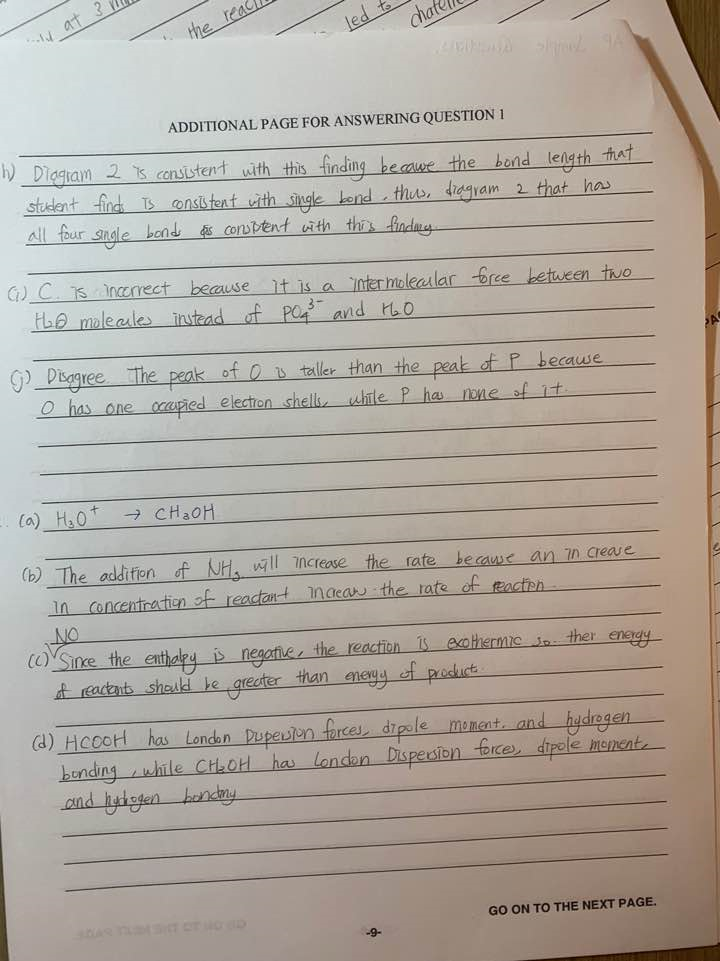 at 3
the reac
led to
chatelie
ADDITIONAL PAGE FOR ANSWERING QUESTION 1
h) Diagram 2 is consistent with this finding because the bond length that
student finds is consistent with single bond, thus, diagram 2 that has
all four single bonds is consistent with this finding.
(i) C. is incorrect because it is a intermolecular force between two
H₂O molecules instead of PO₄³⁻ and H₂O
(j) Disagree. The peak of O is taller than the peak of P because
O has one occupied electron shells, while P has none of it.
(a) H₃O⁺ → CH₃OH
(b) The addition of NH₃ will increase the rate because an increase
in concentration of reactant increase the rate of reaction.
NO
(c) Since the enthalpy is negative, the reaction is exothermic so. ther energy
of reactants should be greater than energy of product.
(d) HCOOH has London Dispersion forces, dipole moment, and hydrogen
bonding, while CH₃OH has London Dispersion forces, dipole moment,
and hydrogen bonding
GO ON TO THE NEXT PAGE.
-9-